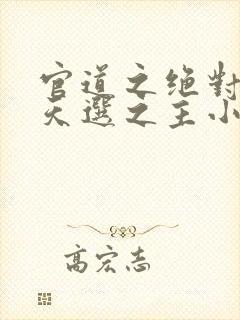 官道之绝對
天選之主小
高宏志